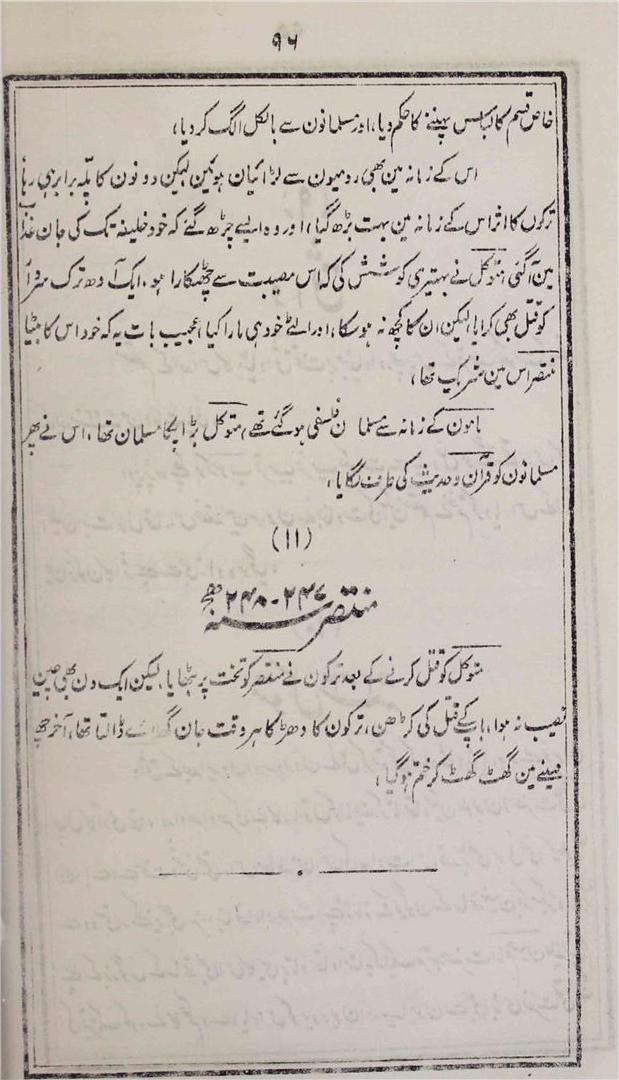 ۹۶
خاص قسم کا لباس پہننے کا حکم دیا، اور مسلمانون سے بالکل الگ کر دیا،
اس کے زمانہ مین بھی رومیون سے لڑائیان ہوئین لیکن دونون کا پلہ برابر ہی رہا
ترکون کا اثر اس کے زمانہ مین بہت بڑھ گیا، اور وہ ایسے چڑھ گئے کہ خود خلیفہ تک کی جان عذاب
مین آگئی، متوکل نے بہتیری کوشش کی کہ اس مصیبت سے چھٹکارا ہو، ایک آدھ ترک سردار
کو قتل بھی کرایا، لیکن ان کا کچھ نہ ہوسکا، اور الٹے خود ہی مارا گیا، عجیب بات یہ کہ خود اس کا بیٹا
منتصر اس مین شریک تھا،
مامون کے زمانہ سے مسلمان فلسفی ہوگئے تھے، متوکل بڑا پکا مسلمان تھا، اس نے پھر
مسلمانون کو قرآن و حدیث کی طرف لگایا،
(۱۱)
منتصر سنہ ۲۴۷-۲۴۸ ھ
متوکل کو قتل کرنے کے بعد ترکون نے منتصر کو تخت پر بٹھایا، لیکن ایک دن بھی چین
نصیب نہ ہوا، باپ کے قتل کی کڑھن، ترکون کا دھڑکا ہر وقت جان گھلائے ڈالتا تھا، آخر چھ
مہینے مین گھٹ گھٹ کر ختم ہوگیا،